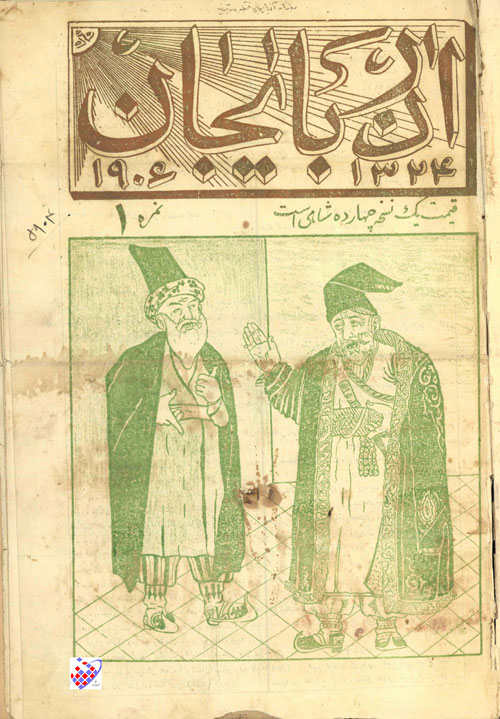 آذربایجان
۱۳۲۴ ۱۹۰۶
قیمت یک نسخه چهارده شاهی است
نمره ۱